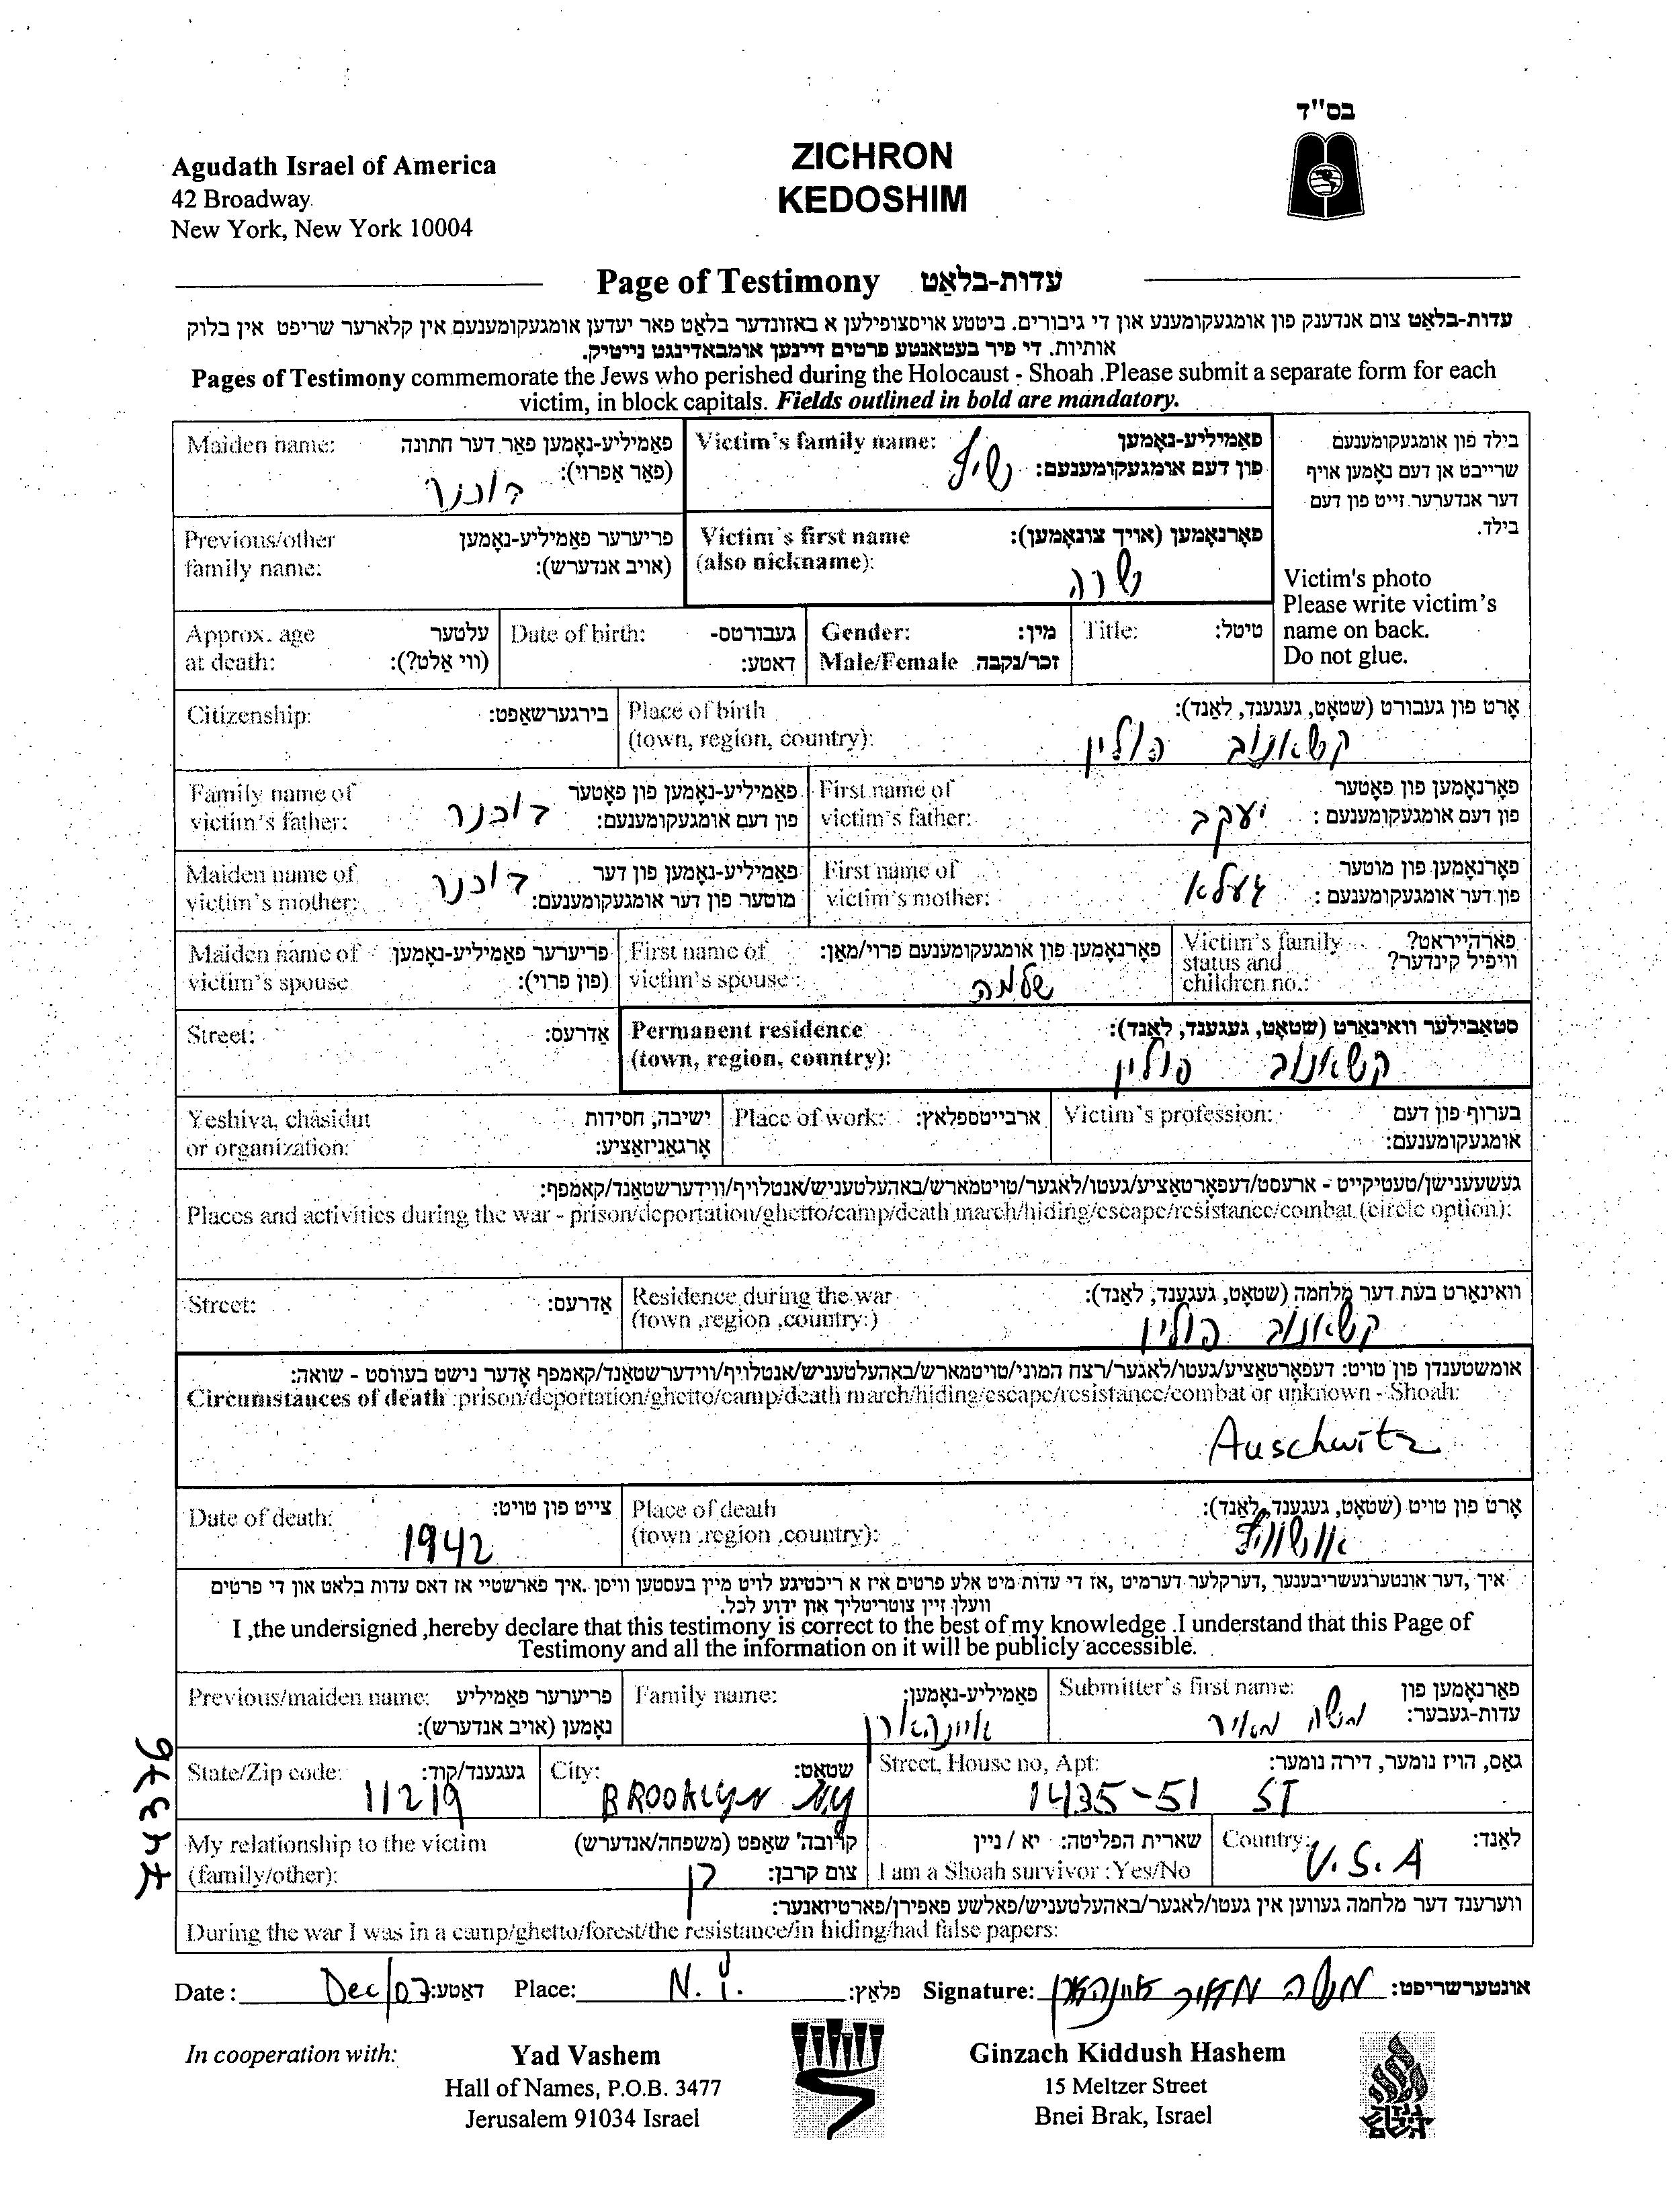 בס"ד
Agudath Israel of America
42 Broadway
New York, New York 10004
ZICHRON
KEDOSHIM
Page of Testimony עדות-בלאָט
עדות-בלאָט צום אנדענק פון אומגעקומענע און די גיבורים. ביטטע אויסצופילען א באזונדער בלאט פאר יעדען אומגעקומענעם אין קלארער שריפט אין בלוק
אותיות. די פיר בעטאנטע פרטים זיינען אומבאדינגט נייטיק.
Pages of Testimony commemorate the Jews who perished during the Holocaust - Shoah .Please submit a separate form for each
victim, in block capitals. Fields outlined in bold are mandatory.
Maiden name: פאַמיליע-נאָמען פאר דער חתונה
(פאַר אַפרוי):
בוכנר
Victim's family name: פאַמיליע-נאָמען
פון דעם אומגעקומענעם:
שיף
בילד פון אומגעקומענעם
שרייבט אן דעם נאָמען אויף
דער אנדערער זייט פון דעם
בילד.
Previous/other פריערער פאַמיליע-נאָמען
family name: (אויב אנדערש):
Victim's first name פאָרנאָמען (אויך צונאָמען):
(also nickname):
שרה
Victim's photo
Please write victim's
name on back.
Do not glue.
Approx. age עלטער
at death: (ווי אַלט?):
Date of birth: געבורטס-
דאַטע:
Gender: מין:
Male/Female זכר/נקבה
Title: טיטל:
Citizenship: בירגערשאַפט:
Place of birth אָרט פון געבורט (שטאָט, געגענד, לאַנד):
(town, region, country):
קשאנוב פולין
Family name of פאַמיליע-נאָמען פון פאָטער
victim's father: פון דעם אומגעקומענעם:
בוכנר
First name of פאָרנאָמען פון פאָטער
victim's father: פון דעם אומגעקומענעם :
יעקב
Maiden name of פאַמיליע-נאָמען פון דער
victim's mother: מוטער פון דער אומגעקומענעם:
בוכנר
First name of פאָרנאָמען פון מוטער
victim's mother: פון דער אומגעקומענעם :
געלא
Maiden name of פריערער פאַמיליע-נאָמען
victim's spouse (פון פרוי):
First name of פאָרנאָמען פון אומגעקומענעם פרוי/מאַן:
victim's spouse :
שלמה
Victim's family פארהייראט?
status and וויפיל קינדער?
children no.:
Street: אַדרעס:
Permanent residence סטאַבילער וואוינאָרט (שטאָט, געגענד, לאַנד):
(town, region, country):
קשאנוב פולין
Yeshiva, chasidut ישיבה, חסידות
or organization: אָרגאַניזאַציע:
Place of work: ארבייטספלאַץ:
Victim's profession: בערוף פון דעם
אומגעקומענעם:
געשעענישן/טעטיקייט - ארעסט/דעפאָרטאַציע/געטו/לאַגער/טויטמארש/באהעלטעניש/אנטלויף/ווידערשטאַנד/קאמפף:
Places and activities during the war - prison/deportation/ghetto/camp/death march/hiding/escape/resistance/combat (circle option):
Street: אַדרעס:
Residence during the war וואוינאָרט בעת דער מלחמה (שטאָט, געגענד, לאַנד):
(town ,region ,country:)
קשאנוב פולין
אומשטענדן פון טויט: דעפאָרטאַציע/געטו/לאַגער/רצח המוני/טויטמארש/באהעלטעניש/אנטלויף/ווידערשטאַנד/קאמפף אָדער נישט בעוווסט - שואה:
Circumstances of death :prison/deportation/ghetto/camp/death march/hiding/escape/resistance/combat or unknown - Shoah:
Auschwitz
Date of death: צייט פון טויט:
1942
Place of death אָרט פון טויט (שטאָט, געגענד, לאַנד):
(town ,region ,country):
איך ,דער אונטערגעשריבענער ,דערקלער דערמיט ,אז די עדות מיט אלע פרטים איז א ריכטיגע לויט מיין בעסטען וויסן .איך פארשטיי אז דאס עדות בלאט און די פרטים
וועלן זיין צוטריטליך און ידוע לכל.
I ,the undersigned ,hereby declare that this testimony is correct to the best of my knowledge .I understand that this Page of
Testimony and all the information on it will be publicly accessible.
Previous/maiden name: פריערער פאַמיליע
נאָמען (אויב אנדערש):
Family name: פאַמיליע-נאָמען:
איינהארן
Submitter's first name: פאָרנאָמען פון
עדות-געבער:
משה מאיר
State/Zip code: געגענד/קוד:
11219
City: שטאָט:
BROOKLYN NY
Street, House no, Apt: גאַס, הויז נומער, דירה נומער:
1435-51 ST
My relationship to the victim קרובה' שאַפט (משפחה/אנדערש)
(family/other): צום קרבן:
בן
שארית הפליטה: יא / ניין
I am a Shoah survivor :Yes/No
Country: לאַנד:
U.S.A
ווערענד דער מלחמה געווען אין געטו/לאגער/באהעלטעניש/פאלשע פאפירן/פארטיזאנער:
During the war I was in a camp/ghetto/forest/the resistance/in hiding/had false papers:
Date : Dec/07 דאַטע: Place: N.Y. פלאַץ: Signature: משה מאיר איינהארן אונטערשריפט:
In cooperation with:
Yad Vashem
Hall of Names, P.O.B. 3477
Jerusalem 91034 Israel
Ginzach Kiddush Hashem
15 Meltzer Street
Bnei Brak, Israel